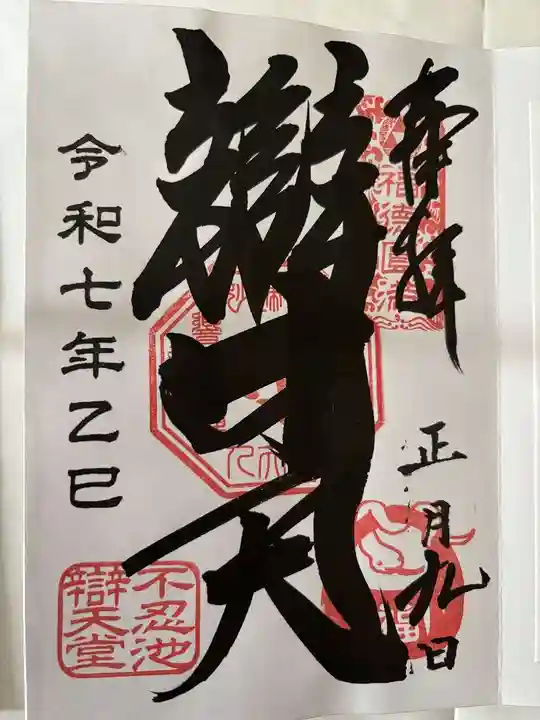 奉拝
福徳円満
正月九日
辯才天
令和七年乙巳
不忍池
辯天堂